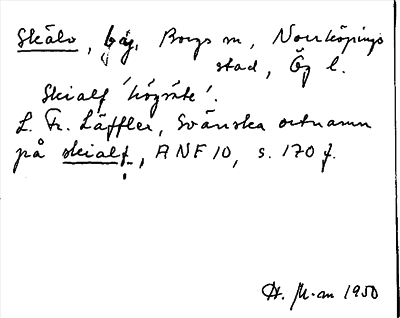 Skälv, bg, Borgs sn, Norrköpings
stad, Ög l.
Skialf 'högsäte'.
L. Fr. Läffler, Svänska ortnamn
på skialf, ANF 10, s. 170 f.
H. M-m 1950